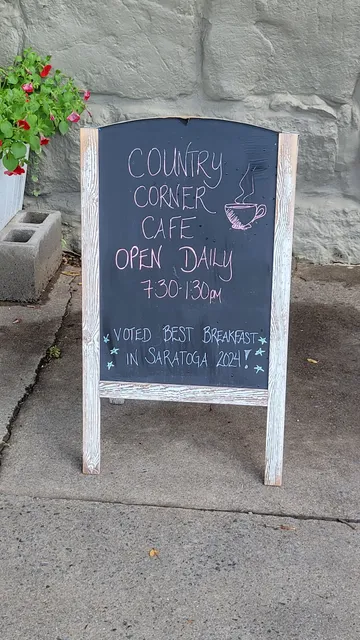 COUNTRY
CORNER
CAFE
OPEN DAILY
7:30-1:30pm
VOTED BEST BREAKFAST
IN SARATOGA 2024!